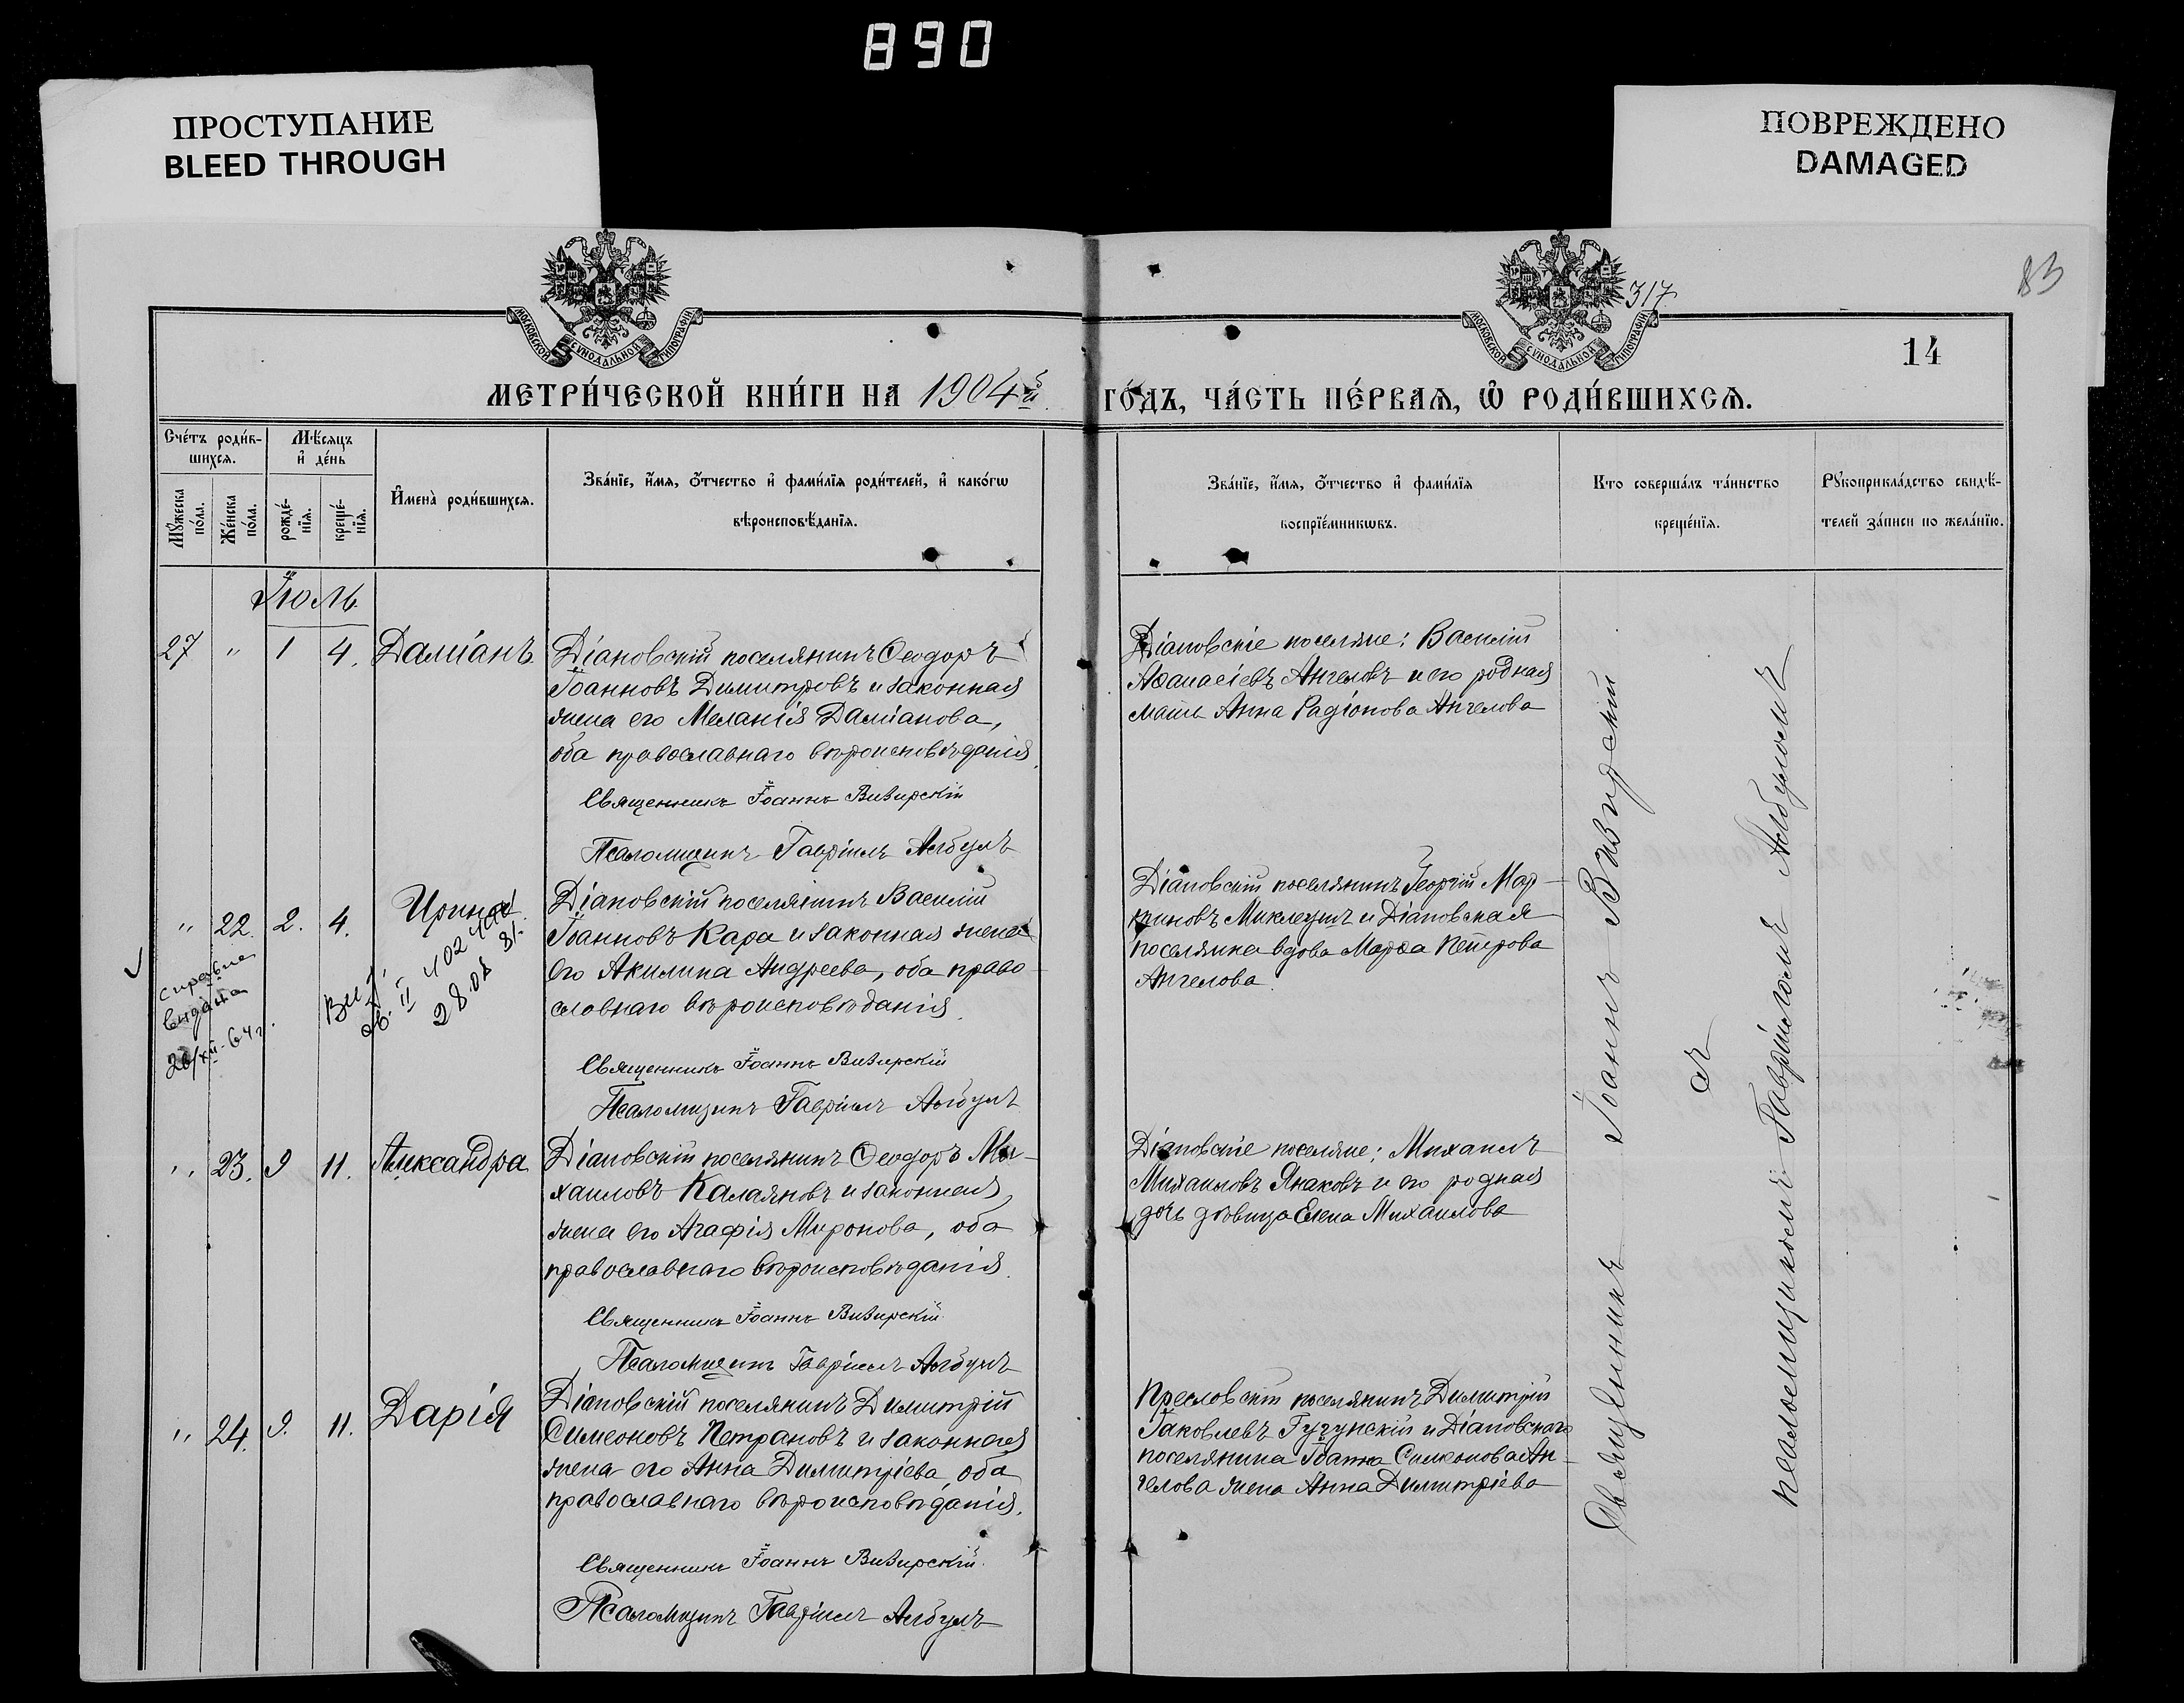 890
ПРОСТУПАНИЕ
BLEED THROUGH
ПОВРЕЖДЕНО
DAMAGED
83
317
14
МОСКОВСКОЙ СУНОДАЛЬНОЙ ТИПОГРАФІИ
МОСКОВСКОЙ СУНОДАЛЬНОЙ ТИПОГРАФІИ
МЕТРИ́ЧЕСКОЙ КНИ́ГИ НА 1904й ГО́ДЪ, ЧА́СТЬ ПЕ́РВАѦ, Ѡ҆ РОДИ́ВШИХСѦ.
Сче́тъ роди́вшихсѧ.
Мѣ́сѧцъ и҆ де́нь
Мꙋ́жеска по́ла.
Же́нска по́ла.
рожде́нїѧ.
креще́нїѧ.
И҆мена̀ роди́вшихсѧ.
Зва́нїе, и҆́мѧ, о҆́тчество и҆ фами́лїѧ роди́телей, и҆ како́гѡ
вѣроисповѣ́данїѧ.
Зва́нїе, и҆́мѧ, о҆́тчество и҆ фами́лїѧ
воспрїе́мникѡвъ.
Кто соверша́лъ та́инство
креще́нїѧ.
Рꙋкоприкла́дство свидѣ́телей за́писи по жела́нїю.
Іюль
27 " 1 4. Даміанъ
Діановскій поселянинъ Ѳеодоръ
Іоанновъ Димитровъ и законная
жена его Меланія Даміанова,
оба православнаго вѣроисповѣданія.
Священникъ Іоаннъ Визирскій
Псаломщикъ Гавріилъ Албулъ
Діановскіе поселяне: Василій
Аѳанасіевъ Ангеловъ и его родная
мать Анна Радіонова Ангелова
" 22. 2. 4. Ирина
справка
выдана
28.08 81.
Діановскій поселянинъ Василій
Іоанновъ Кара и законная жена
его Акилина Андреева, оба право-
славнаго вѣроисповѣданія.
Священникъ Іоаннъ Визирскій
Псаломщикъ Гавріилъ Албулъ
Діановскій поселянинъ Георгій Мар-
тиновъ Миклеушъ и Діановская
поселянка вдова Марѳа Петрова
Ангелова.
" 23. 9 11. Александра
Діановскій поселянинъ Ѳеодоръ Ми-
хаиловъ Калаяновъ и законная
жена его Агафія Миронова, оба
православнаго вѣроисповѣданія.
Священникъ Іоаннъ Визирскій
Псаломщикъ Гавріилъ Албулъ
Діановскіе поселяне: Михаилъ
Михаиловъ Янаковъ и его родная
дочь дѣвица Елена Михаилова
" 24. 9. 11. Дарія
Діановскій поселянинъ Димитрій
Симеоновъ Петрановъ и законная
жена его Анна Димитріева, оба
православнаго вѣроисповѣданія.
Священникъ Іоаннъ Визирскій
Псаломщикъ Гавріилъ Албулъ
Преславскій поселянинъ Димитрій
Іаковлевъ Гугунскій и Діановскаго
поселянина Іоанна Симеонова Ан-
гелова жена Анна Димитріева
Священникъ Іоаннъ Визирскій
съ
псаломщикомъ Гавріиломъ Албуломъ